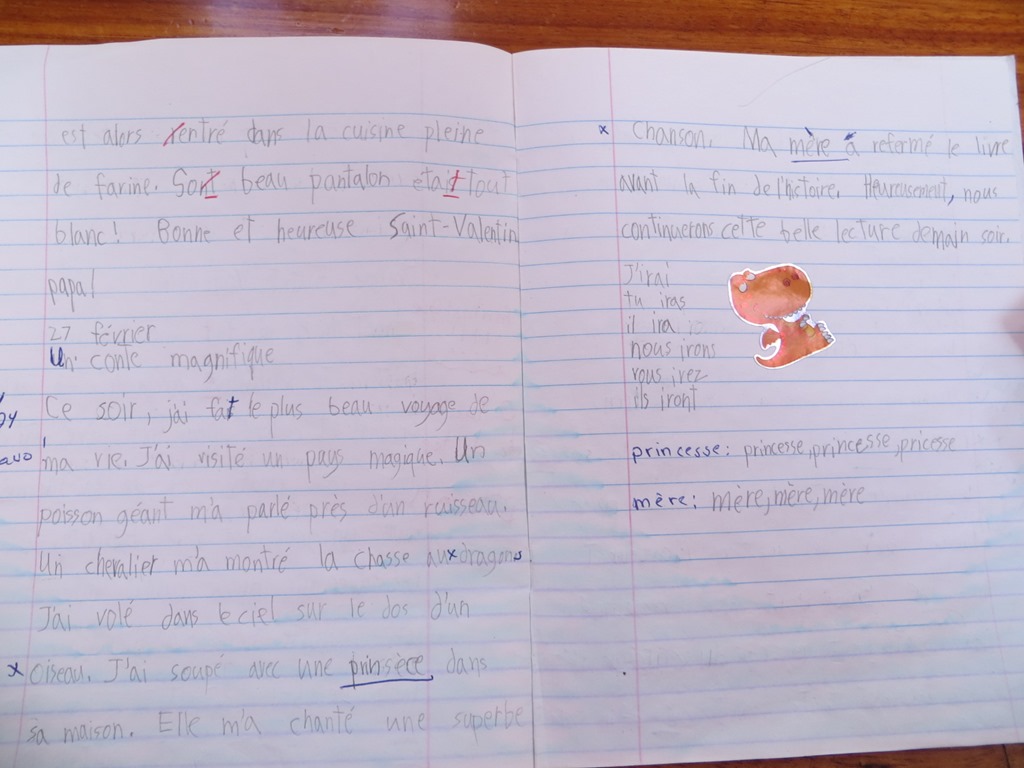 est alors rentré dans la cuisine pleine
de farine. Sont beau pantalon était tout
blanc! Bonne et heureuse Saint-Valentin
papa!
27 février
Un conte magnifique
Ce soir, j'ai fat le plus beau voyage de
ma vie. J'ai visité un pays magique. Un
poisson géant m'a parlé près d'un ruisseau.
Un chevalier m'a montré la chasse aux dragons.
J'ai volé dans le ciel sur le dos d'un
x oiseau. J'ai soupé avec une prinsèce, dans
sa maison. Elle m'a chanté une superbe
x chanson. Ma mère a refermé le livre
avant la fin de l'hictoire. Heureusement, nous
continuerons cette belle lecture demain soir.
J'irai
tu iras
il ira
nous irons
vous irez
ils iront
princesse: princesse, princesse, pricesse
mère: mère, mère, mère